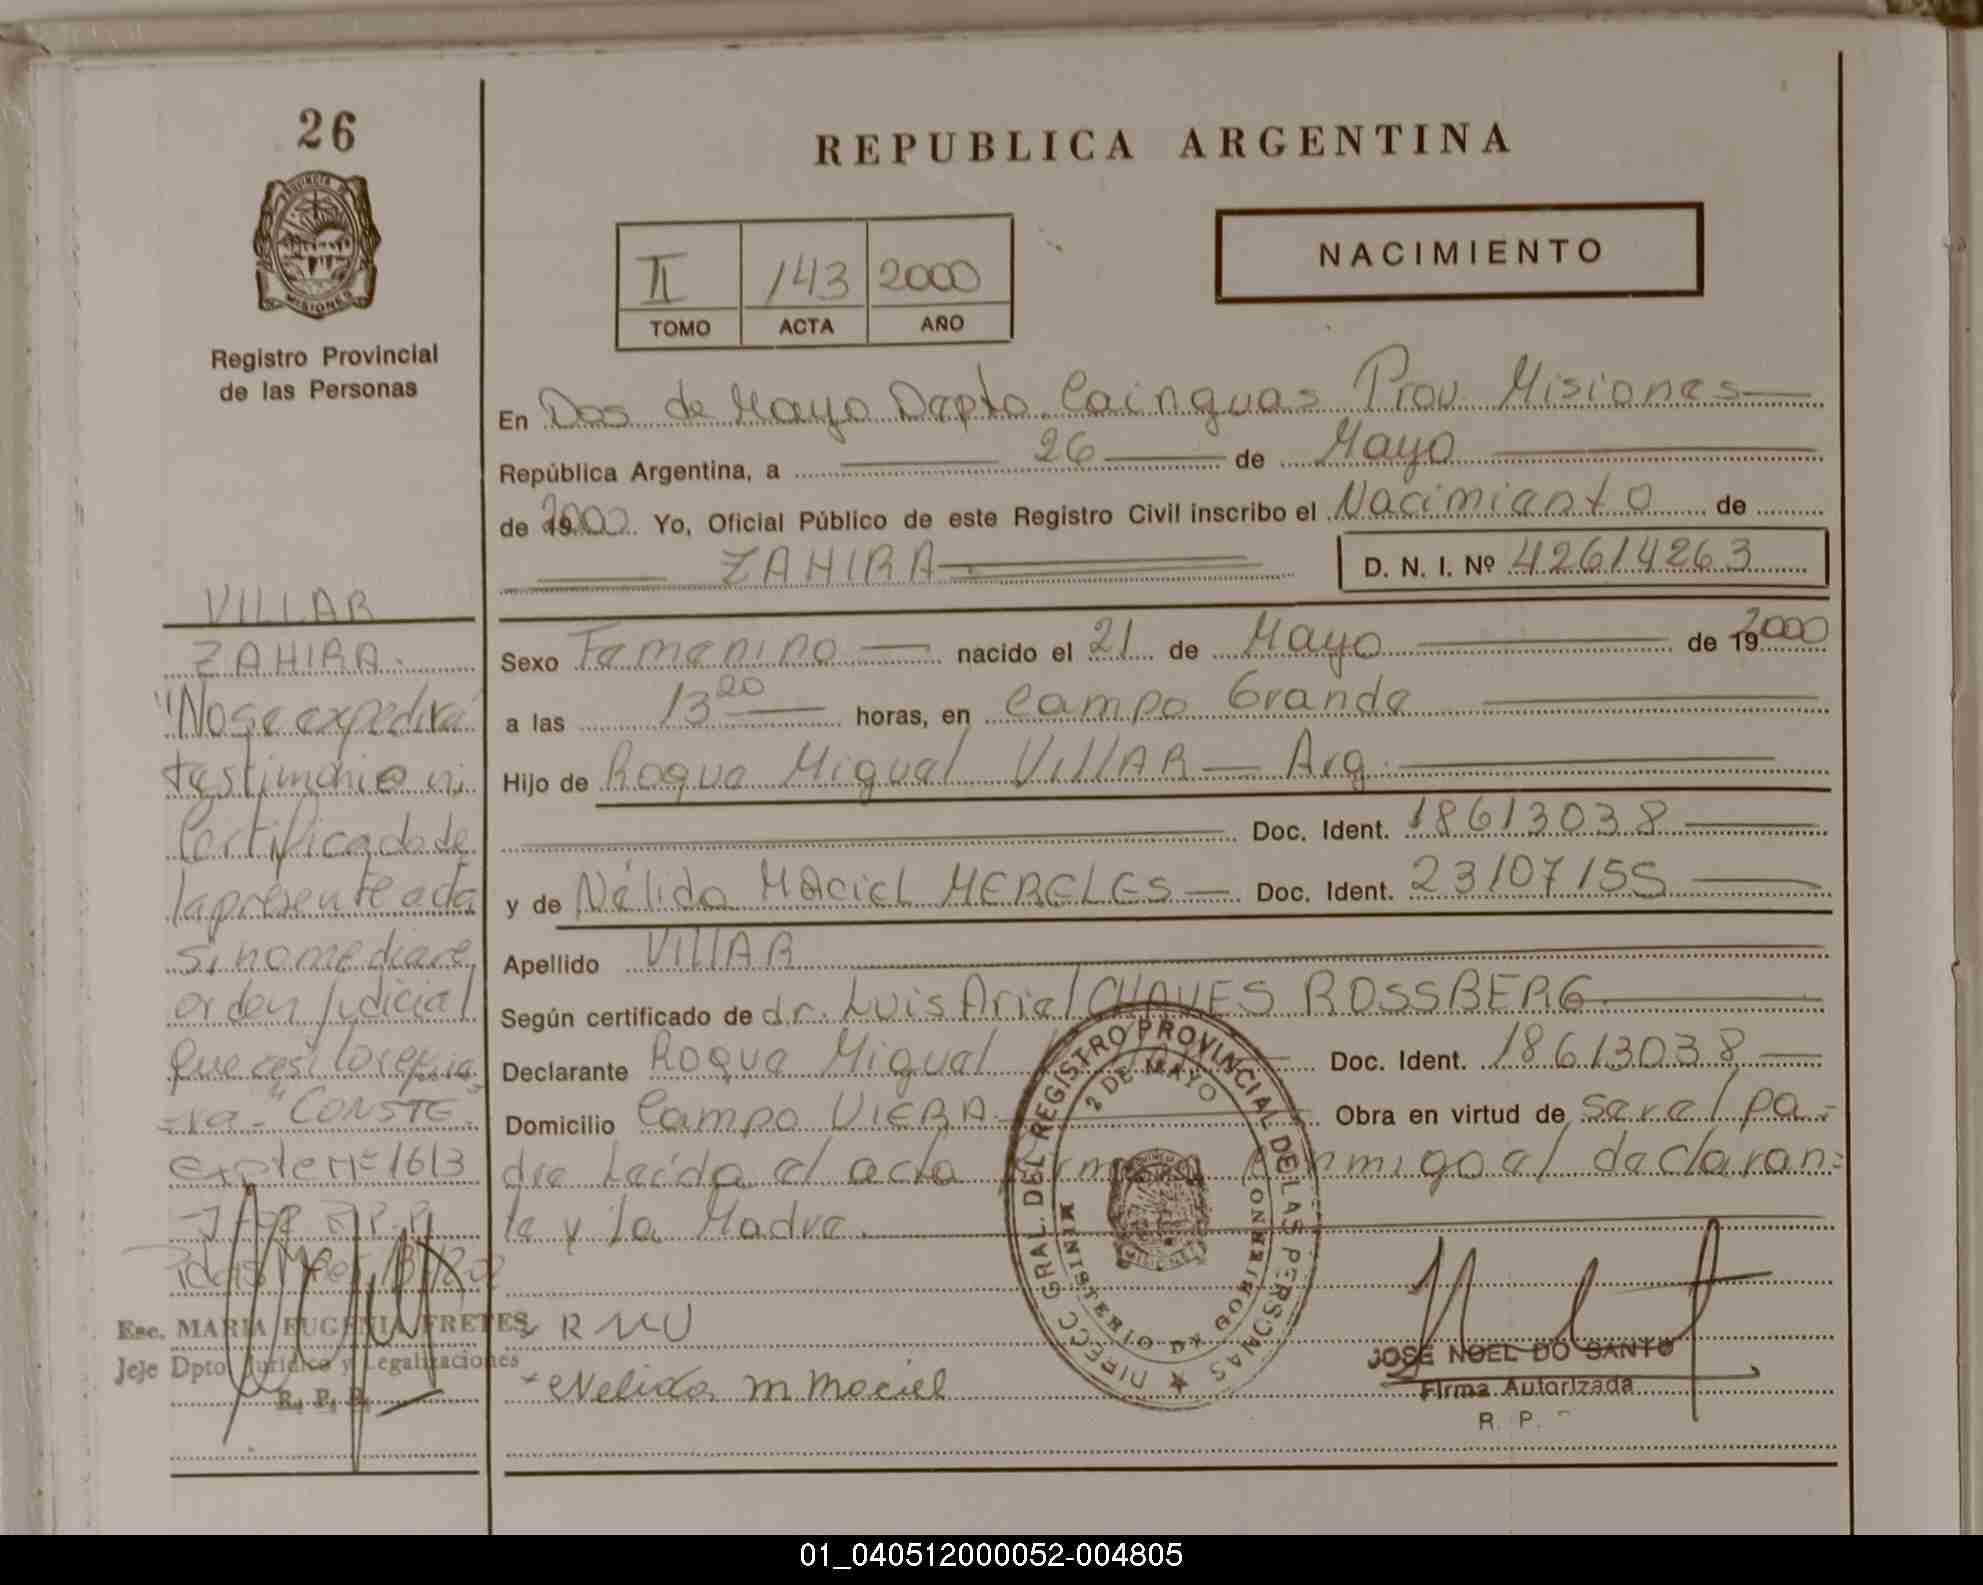 26
REPUBLICA ARGENTINA
PROVINCIA DE
MISIONES
Registro Provincial
de las Personas
II 143 2000
TOMO ACTA AÑO
NACIMIENTO
En Dos de Mayo Depto. Cainguas Prov. Misiones
República Argentina, a 26 de Mayo
de 2000. Yo, Oficial Público de este Registro Civil inscribo el Nacimiento de
ZAHIRA
D. N. I. Nº 42614263
Sexo Femenino nacido el 21 de Mayo de 19 2000
a las 13 20 horas, en Campo Grande
Hijo de Roque Miguel VILLAR - Arg.
Doc. Ident. 18613038
y de Nélida Maciel MERELES - Doc. Ident. 23107155
Apellido VILLAR
Según certificado de dr. Luis Ariel CHAVES ROSSBERG
Declarante Roque Miguel Doc. Ident. 18613038
Domicilio Campo VIERA Obra en virtud de ser el pa-
dre Leída el acta conmigo el declaran-
te y la Madre.
RMV
Nelida M Maciel
JOSE NOEL DO SANTO
Firma Autorizada
R. P.
DIRECC GRAL. DEL REGISTRO PROVINCIAL DE LAS PERSONAS
2 DE MAYO
MINISTERIO DE GOBIERNO
MISIONES
VILLAR
ZAHIRA.
"No se expedirá
testimonio ni
Certificado de
la presente acta
si no mediare
orden judicial
que así lo requie
-ra-" CONSTE-
expte Nº 1613
R.P.P.
Esc. MARIA EUGENIA FRETES
Jefe Dpto Jurídico y Legalizaciones
R. P. P.
01_040512000052-004805